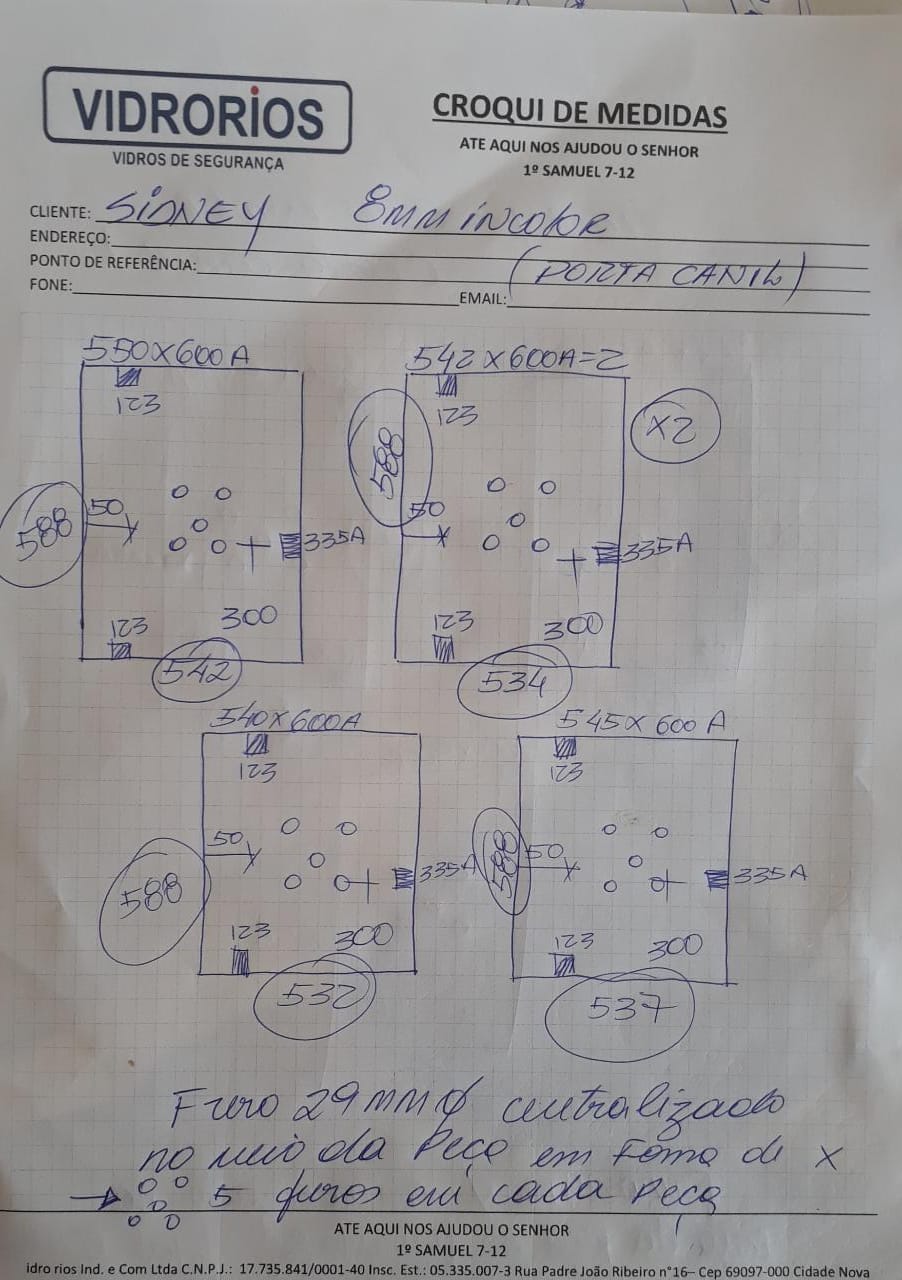 VIDRORIOS
VIDROS DE SEGURANÇA
CROQUI DE MEDIDAS
ATE AQUI NOS AJUDOU O SENHOR
1º SAMUEL 7-12
CLIENTE: SIDNEY 8MM INCOLOR
ENDEREÇO:
PONTO DE REFERÊNCIA: (PORTA CANIL)
FONE: EMAIL:
550X600A
123
588
50
335A
123
300
542
542X600A=2
123
X2
588
50
335A
123
300
534
540X600A
123
50
335A
588
123
300
532
545X 600 A
123
588
50
335A
123
300
537
Furo 29MMϕ centralizado
no meio da Peça em Foma de X
→ 5 furos em cada Peça
ATE AQUI NOS AJUDOU O SENHOR
1º SAMUEL 7-12
idro rios Ind. e Com Ltda C.N.P.J.: 17.735.841/0001-40 Insc. Est.: 05.335.007-3 Rua Padre João Ribeiro n°16– Cep 69097-000 Cidade Nova